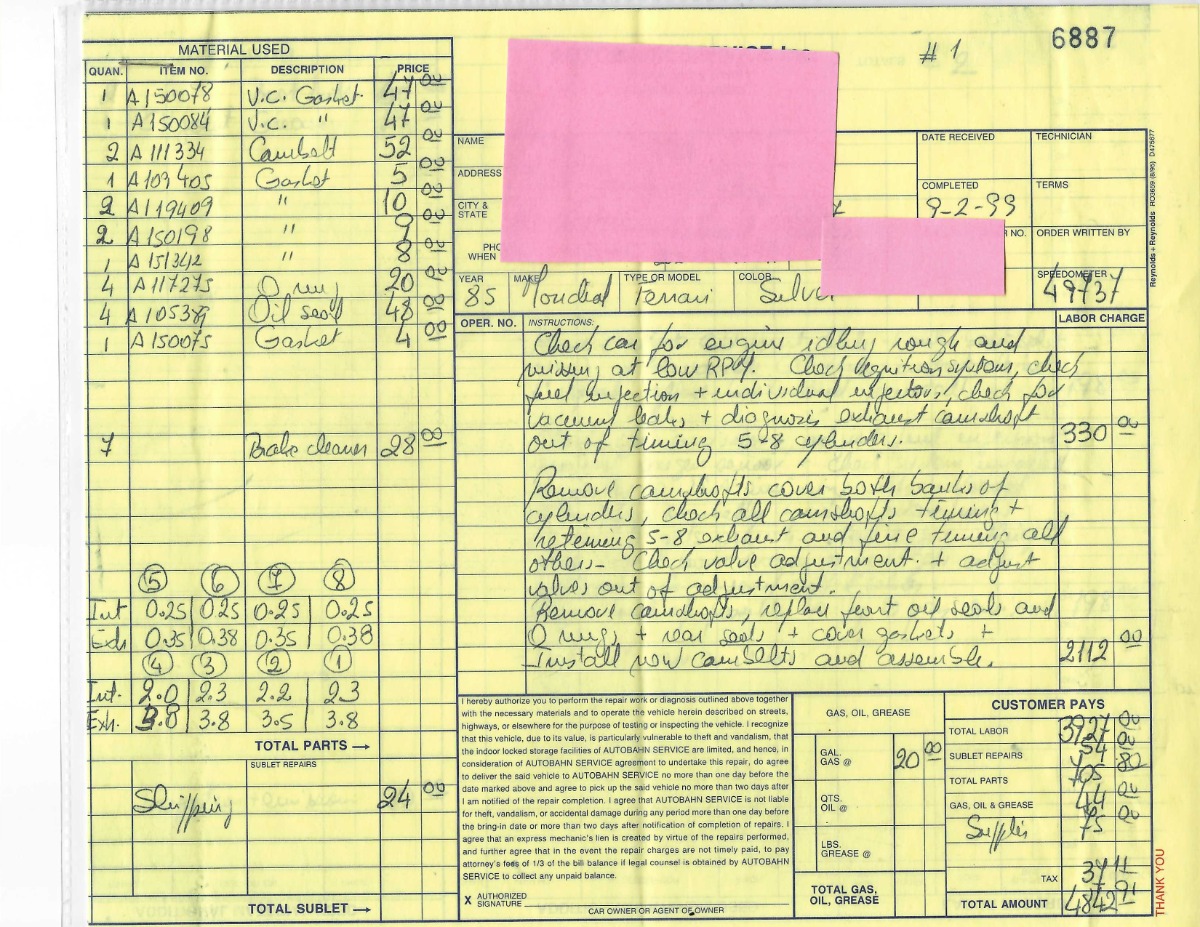 6887
# 1
MATERIAL USED
QUAN. ITEM NO. DESCRIPTION PRICE
1 A150078 V.C. Gasket 47 00
1 A150084 V.C. " 47 00
2 A111334 Cambelt 52 00
1 A109405 Gasket 5 00
2 A119409 " 10 00
2 A150198 " 9 00
1 A151342 " 8 00
4 A117275 O ring 20 00
4 A105389 Oil seal 48 00
1 A150075 Gasket 4 00
7 Brake cleaner 28 00
5 6 7 8
Int 0.25 0.25 0.25 0.25
Exh 0.35 0.38 0.35 0.38
4 3 2 1
Int. 2.0 2.3 2.2 2.3
Exh. 3.8 3.8 3.5 3.8
TOTAL PARTS →
SUBLET REPAIRS
Shipping 24 00
TOTAL SUBLET →
NAME
ADDRESS
CITY &
STATE
WHEN
DATE RECEIVED
TECHNICIAN
COMPLETED
9-2-99
TERMS
NO.
ORDER WRITTEN BY
YEAR
85
MAKE
Mondial
TYPE OR MODEL
Ferrari
COLOR
Silver
SPEEDOMETER
49737
Reynolds + Reynolds
OPER. NO. INSTRUCTIONS: LABOR CHARGE
Check car for engine idling rough and
missing at low RPM. Check ignition system, check
fuel injection + individual injectors, check for
vacuum leaks + diagnosis exhaust camshaft
out of timing 5-8 cylinders. 330 00
Remove camshafts cover both banks of
cylinders, check all camshafts timing +
reteming 5-8 exhaust and fine timing all
others- Check valve adjustment. + adjust
valves out of adjustment.
Remove camshafts, replace front oil seals and
O rings + rear seals + cover gaskets +
Install new cambelts and assemble. 2112 00
I hereby authorize you to perform the repair work or diagnosis outlined above together
with the necessary materials and to operate the vehicle herein described on streets,
highways, or elsewhere for the purpose of testing or inspecting the vehicle. I recognize
that this vehicle, due to its value, is particularly vulnerable to theft and vandalism, that
the indoor locked storage facilities of AUTOBAHN SERVICE are limited, and hence, in
consideration of AUTOBAHN SERVICE agreement to undertake this repair, do agree
to deliver the said vehicle to AUTOBAHN SERVICE no more than one day before the
date marked above and agree to pick up the said vehicle no more than two days after
I am notified of the repair completion. I agree that AUTOBAHN SERVICE is not liable
for theft, vandalism, or accidental damage during any period more than one day before
the bring-in date or more than two days after notification of completion of repairs. I
agree that an express mechanic's lien is created by virtue of the repairs performed,
and further agree that in the event the repair charges are not timely paid, to pay
attorney's fees of 1/3 of the bill balance if legal counsel is obtained by AUTOBAHN
SERVICE to collect any unpaid balance.
X AUTHORIZED
SIGNATURE
CAR OWNER OR AGENT OF OWNER
GAS, OIL, GREASE
GAL.
GAS @ 20 00
QTS.
OIL @
LBS.
GREASE @
TOTAL GAS,
OIL, GREASE
CUSTOMER PAYS
TOTAL LABOR 3927 00
SUBLET REPAIRS 54 00
TOTAL PARTS 705 80
GAS, OIL & GREASE 44 00
Supplies 75 00
TAX 37 11
TOTAL AMOUNT 4842 91
THANK YOU